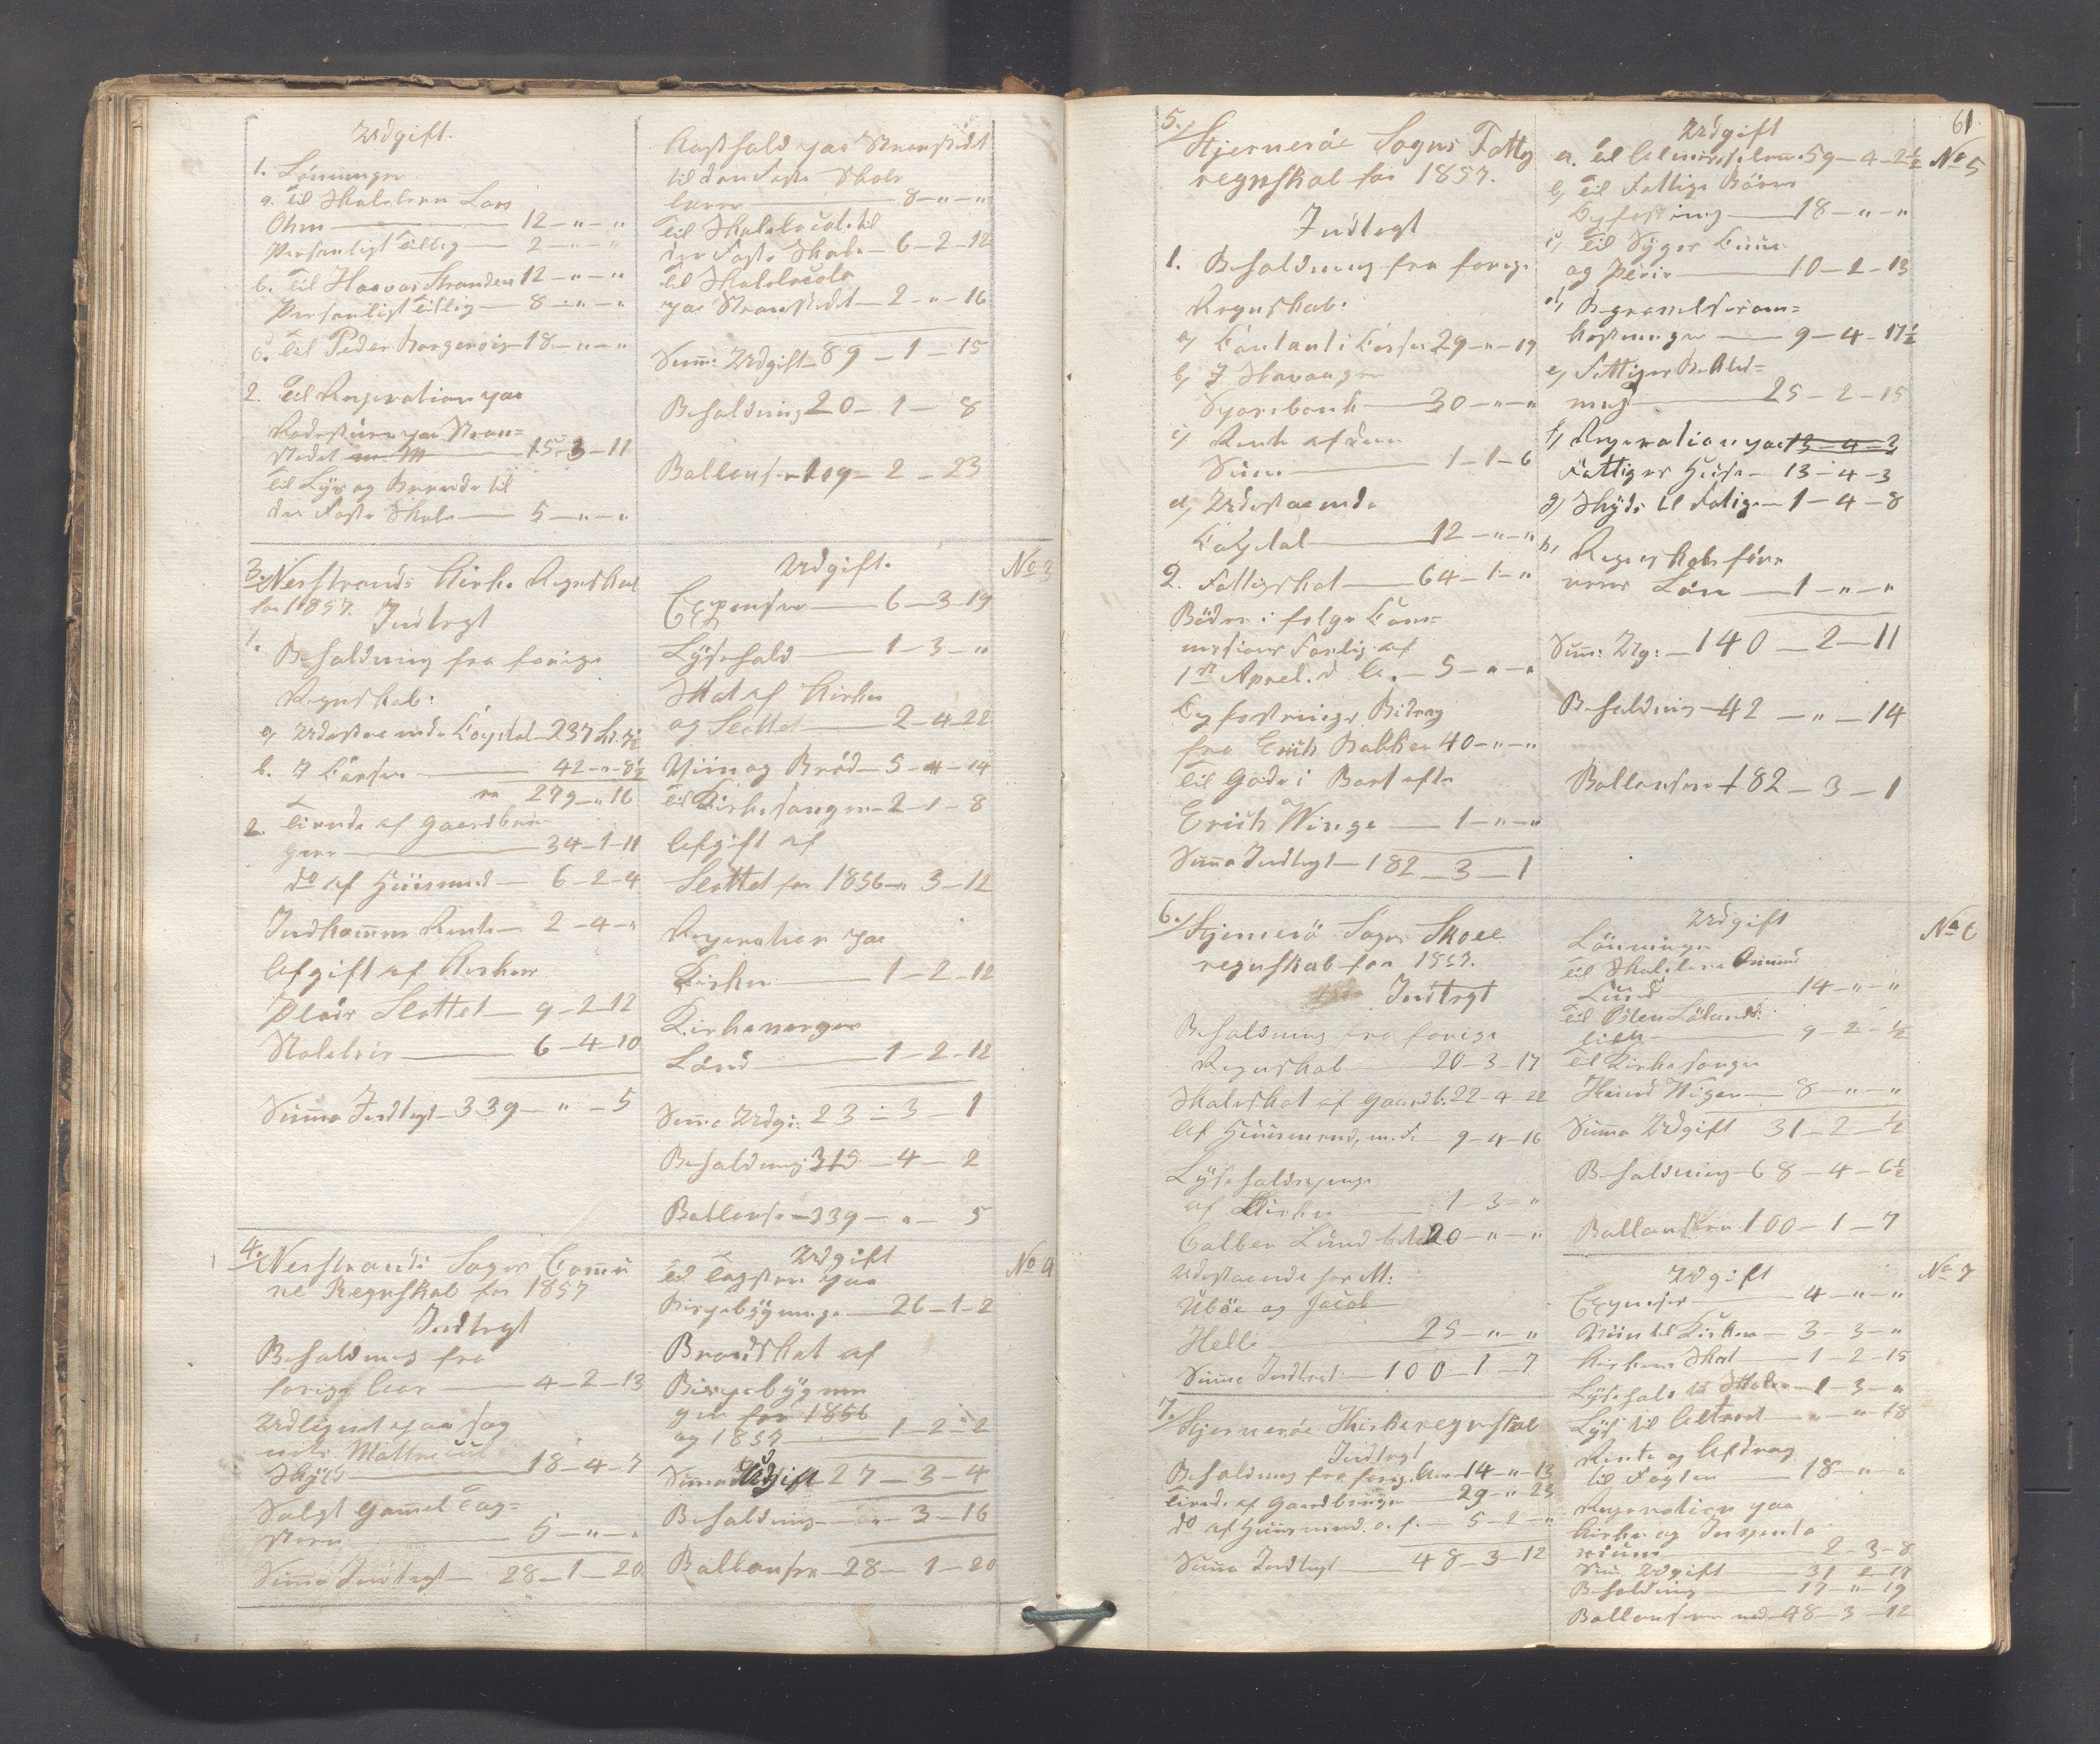 Udgift.
1. Lönninger
a. til Skolelærer Lars
Ohm — 12 – „ – „
Personligt Tillæg — 2 – „ – „
b. til Haavar Stranden 12 – „ – „
Personligt Tillæg — 8 – „ – „
c. til Peder Borgerøie 18 – „ – „
2. til Reperation paa
stedet — 15 – 3 – 11
til Lys og Brænde til
den Faste Skole — 5 – „ – „
Kosthold paa Skolestedet
til den Faste Skole
lærer — 8 – „ – „
til Skolelocale til
den Faste Skole – 6 – 2 – 12
til Skolelocale
paa — 2 – „ – 16
Sum: Udgift 89 – 1 – 15
Beholdning 20 – 1 – 8
Ballanserer 109 – 2 – 23
3. Nerstrands Kirke Regnskab
for 1857. Indtegt
1. Beholdning fra forige
Regnskab:
a, Udestaaende Capital 237
b. I Cassen — 42 – „ – 8½
279 – „ 16
2. Tiende af Gaardbru-
gere — 34 – 1 – 11
do af Huusmænd — 6 – 2 – 4
Indkommen Rente – 2 – 4 – „
Afgift af Kirkens
Slottet — 9 – 2 – 12
— 6 – 4 – 10
Summa Indtegt – 339 – „ – 5
Udgift. No 3
Expenser — 6 – 3 – 19
Lysehold — 1 – 3 – „
Skat af Kirken
og Slottet — 2 – 4 – 22
Viin og Bröd – 5 – 4 – 14
til Kirkesanger – 2 – 1 – 8
Afgift af
Slottet for 1856 – „ 3 – 12
Reperation paa
Kirken — 1 – 2 – 12
Kirkeverger
Lønd — 1 – 2 – 12
Summa Udgi: 23 – 3 – 1
Beholdning 315 – 4 – 2
Ballanse – 339 – „ – 5
4. Nerstrands Sogns Comu
ne Regnskab for 1857
Indtegt
Beholdning fra
forige Aar — 4 – 2 – 13
Udlignet paa Sog
nets Matricul
Skyld — 18 – 4 – 7
Solgt gamel Tag-
steen — 5 – „ – „
Summa Indtegt – 28 – 1 – 20
Udgift No 4
til Tagsteen paa
Bispebygninge — 26 – 1 – 2
Brandskat af
Bispebygnin
gen for 1856
og 1857 — 1 – 2 – 2
Summa Udgift 27 – 3 – 4
Beholdning – „ – 3 – 16
Ballansere – 28 – 1 – 20
61
5. Hjernerøe Sogns Fattig
regnskab for 1857.
Indtegt
1. Beholdning fra forige
Regnskab:
a, Contant i Cassen 29 – „ – 19
b, I Stavanger
Sparebank — 30 – „ – „
c, Rente af denne
Sum — 1 – 1 – 6
d, Udestaaende
Capital — 12 – „ – „
2. Fattigskat — 64 – 1 – „
Böder i følge Com-
misions Forlig af
1ste Aprel d. A. – 5 – „ – „
Opfostrings Bidrag
fra Erich Bakken 40 – „ – „
til gode i Boet efter
Erich Winge — 1 – „ – „
Summa Indtegt – 182 – 3 – 1
Udgift
a. til Almisselem: 59 – 4 – 2½ No 5
b, til Fattige Börns
Opfostring — 18 – „ – „
c, til Syges Cuur
og Pleie — 10 – 2 – 13
d, Begravelsesom-
kostninger — 9 – 4 – 17½
e, Fattiges Beklæd-
ning — 25 – 2 – 15
f, Reperation paa 13 – 4 – 3
Fattiges Huse – 13 – 4 – 3
g, Skyds til Fatige – 1 – 4 – 8
h, Regnskabsföre
rens Løn — 1 – „ – „
Sum: Udg: – 140 – 2 – 11
Beholdning – 42 – „ – 14
Ballansere 182 – 3 – 1
6. Hjernerö Sogns Skole
regnskab for 1857.
Indtegt
Beholdning fra forige
Regnskab — 20 – 3 – 17
Skoleskat af Gaardb. 22 – 4 – 22
Af Huusmænd, m. f. – 9 – 4 – 16
Lyseholdspenge
af Kirken — 1 – 3 – „
Lund 20 – „ – „
Udestaaende hos M:
Uböe og Jacob
Helle — 25 – „ – „
Summa Indtegt – 100 – 1 – 7
Udgift No 6
Lönninge
til Skolelærer
Lund — 14 – „ – „
til
— 9 – 2 – ½
til Kirkesanger
— 8 – „ – „
Summa Udgift 31 – 2 – ½
Beholdning – 68 – 4 – 6½
Ballanseren 100 – 1 – 7
7. Hjernerøe Kirkeregnskab
Indtegt
Beholdning fra forige Aar 14 – „ – 13
Tiende af Gaardbruger — 29 – „ – 23
do af Huusmænd. o. f. – 5 – 2 – „
Summa Indtegt — 48 – 3 – 12
Udgift No 7
Expenser — 4 – „ – „
Viin til Kirken – 3 – 3 – „
Kirkens Skat — 1 – 2 – 15
Lysehold til Skolen – 1 – 3 – „
Lys til Alteret – „ – „ 18
Rente og Afdrag
til — 18 – „ – „
Reperation paa
Kirke og Inventa
rium — 2 – 3 – 8
Sum: Udgift — 31 – 2 – 17
Beholdning — 17 – „ – 19
Ballanserer med – 48 – 3 – 12